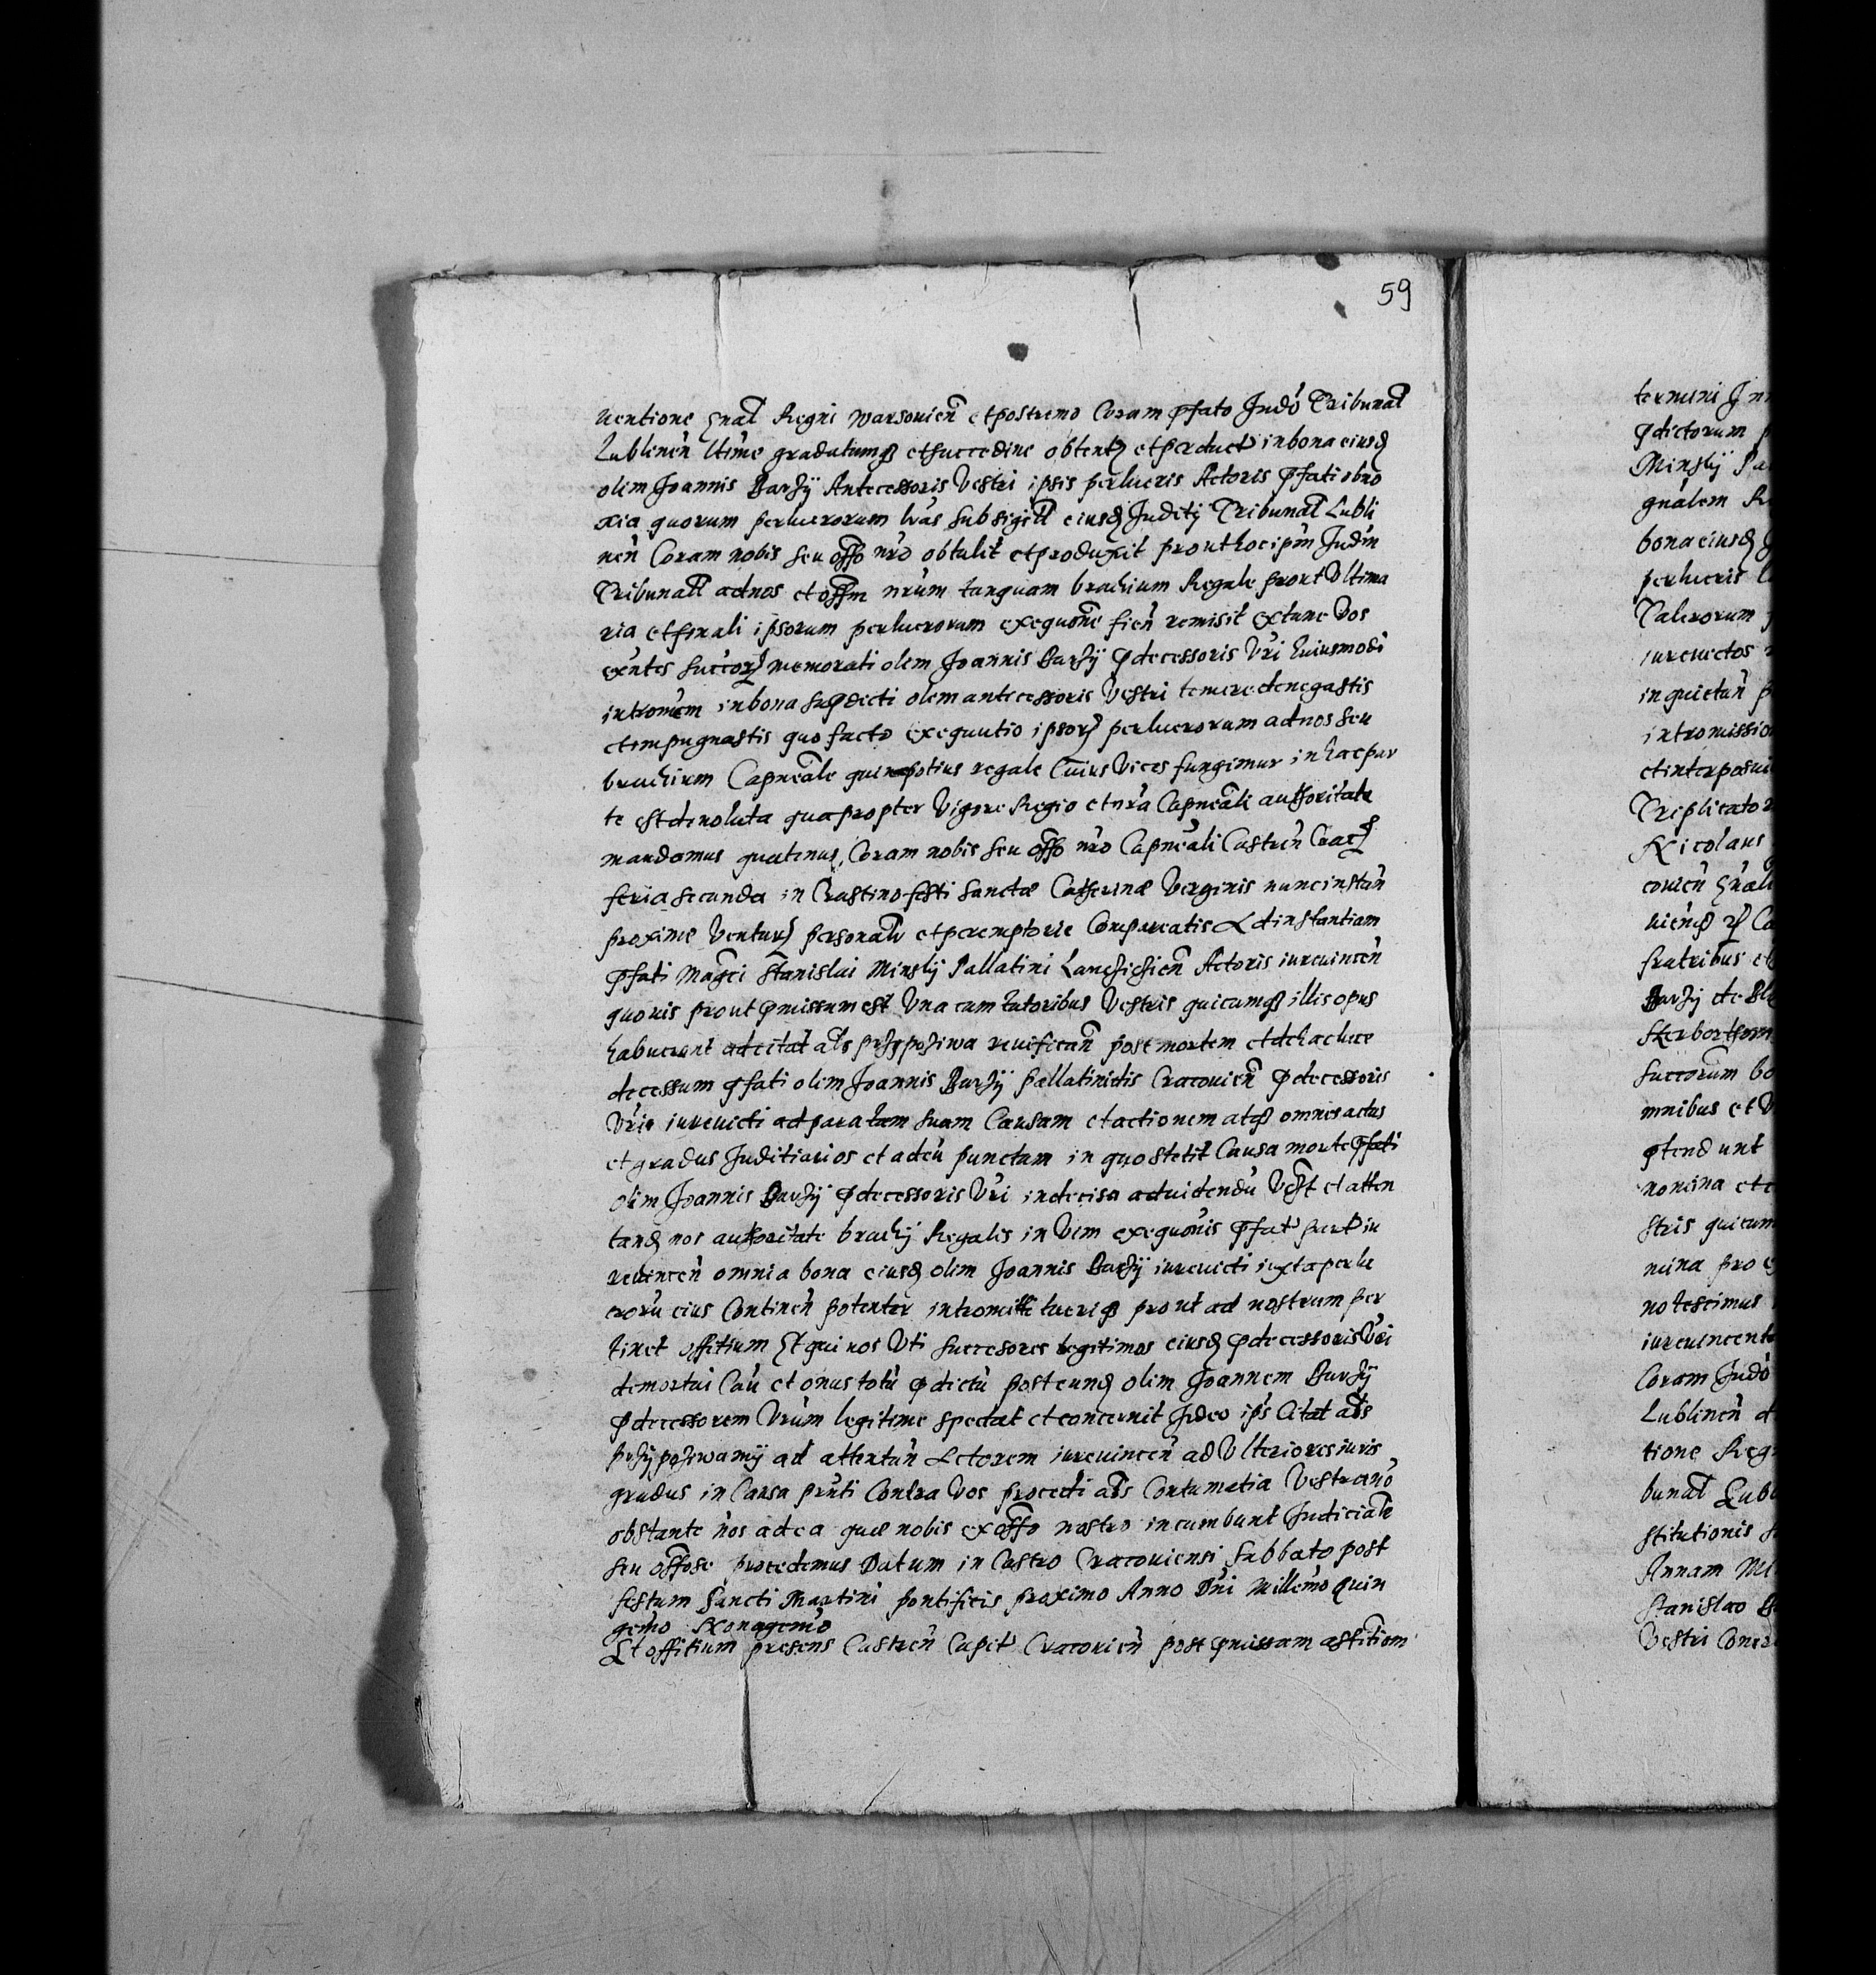 59
uentione gnal Regni warsouien et postremo Coram pfato Judo Tribunal
Lublinen ltime gradatumq et succedine obtent et perduct in bona eiusd
olim Joannis Barzy Antecessoris Vestri ipsis perlucris Actoris pfati obno
xia quorum perlucrorum lras sub sigill eiusd Juditij Tribunal Lubli
nen Coram nobis seu offo nro obtulit et produxit prout hoc ipm Judm
Tribunall ad nos et offm nrum tanquam brachium Regale pro ut Ultima
ria et finali ipsorum perlucrorum exequone fien remisit ex tunc Vos
exntes succor memorati olim Joannis Barzy pdecessoris Vri huiusmodi
intromem in bona supdicti olim antecessoris Vestri temere denegastis
et impugnastis quo facto exequutio ipsor perlucrorum ad nos seu
brachium Capneale quin potius regale Cuius Vices fungimur in hac par
te est deuoluta qua propter Vigore Regio et nra Capneali authoritate
mandamus quatenus Coram nobis seu offo nro Capneali Castren Crac
feria secunda in Crastino festi Sanctæ Catherinæ Virginis nunc instan
proxime Ventur personalr et peremptorie Compareatis Ad instantiam
pfati Magci Stanislai Minsky Pallatini Lancicien Actoris iureuincen
quouis prout pmissum est Una cum tutoribus Vestris quicumq illis opus
habuerint ad citat als przypoziwa reuifican post mortem et de hac luce
decessum pfati olim Joannis Barzy pallatinidis Cracouien pdecessoris
Vri iureuicti ad paratam suam Causam et actionem atq omnes actus
et gradus Juditiarios et ad eu punctum in quo stetit Causa morte pfati
olim Joannis Barzy pdecessoris Vri indecisa ad uidendu Vest et atten
tand nos authoritate brachij Regalis in Vim exequonis pfat part iu
reuincen omnia bona eiusd olim Joannis Barzy iureuicti iuxta perlu
croru eius Continen potenter intromitte tueriq prout ad nostrum per
tinet offitium Et qui nos Uti successores legitimos eiusd pdecessoris Vri
demortui Cau et onus totu pdictu post eund olim Joannem Barzy
pdecessorem Vrum legitime spectat et concernit Ideo ips Citat als
przypozwamy ad attentan Actorem iureuincen ad Ulteriores iuris
gradus in Causa pnti Contra Vos procedi als Contumatia Vestra no
obstante nos ad ea quæ nobis ex offo nostro incumbunt Judiciale
seu offose procedemus Datum in Castro Cracouiensi Sabbato post
festum Sancti Martini pontificis proximo Anno Dni Millemo quin
gemo Nonagemo
Et offitium presens Castren Capit Cracouien post pmissam astitiom
termini In
pdictorum
Minsky Pa
gnalem
bona eiusd
perlucris
Talerorum
iureuictos
inquietan
intromissio
et interposui
Triplicato
Nicolaus
couien gnali
fratribus et
Barzy de
succorum bo
mnibus et
ptendunt
nomina et
stris quicum
mina pro
notescimus
iureuincent
Coram Judo
Lublinen
tione Reg
bunal Lub
stitutionis
Annam Mi
Stanislao
Vestri Con